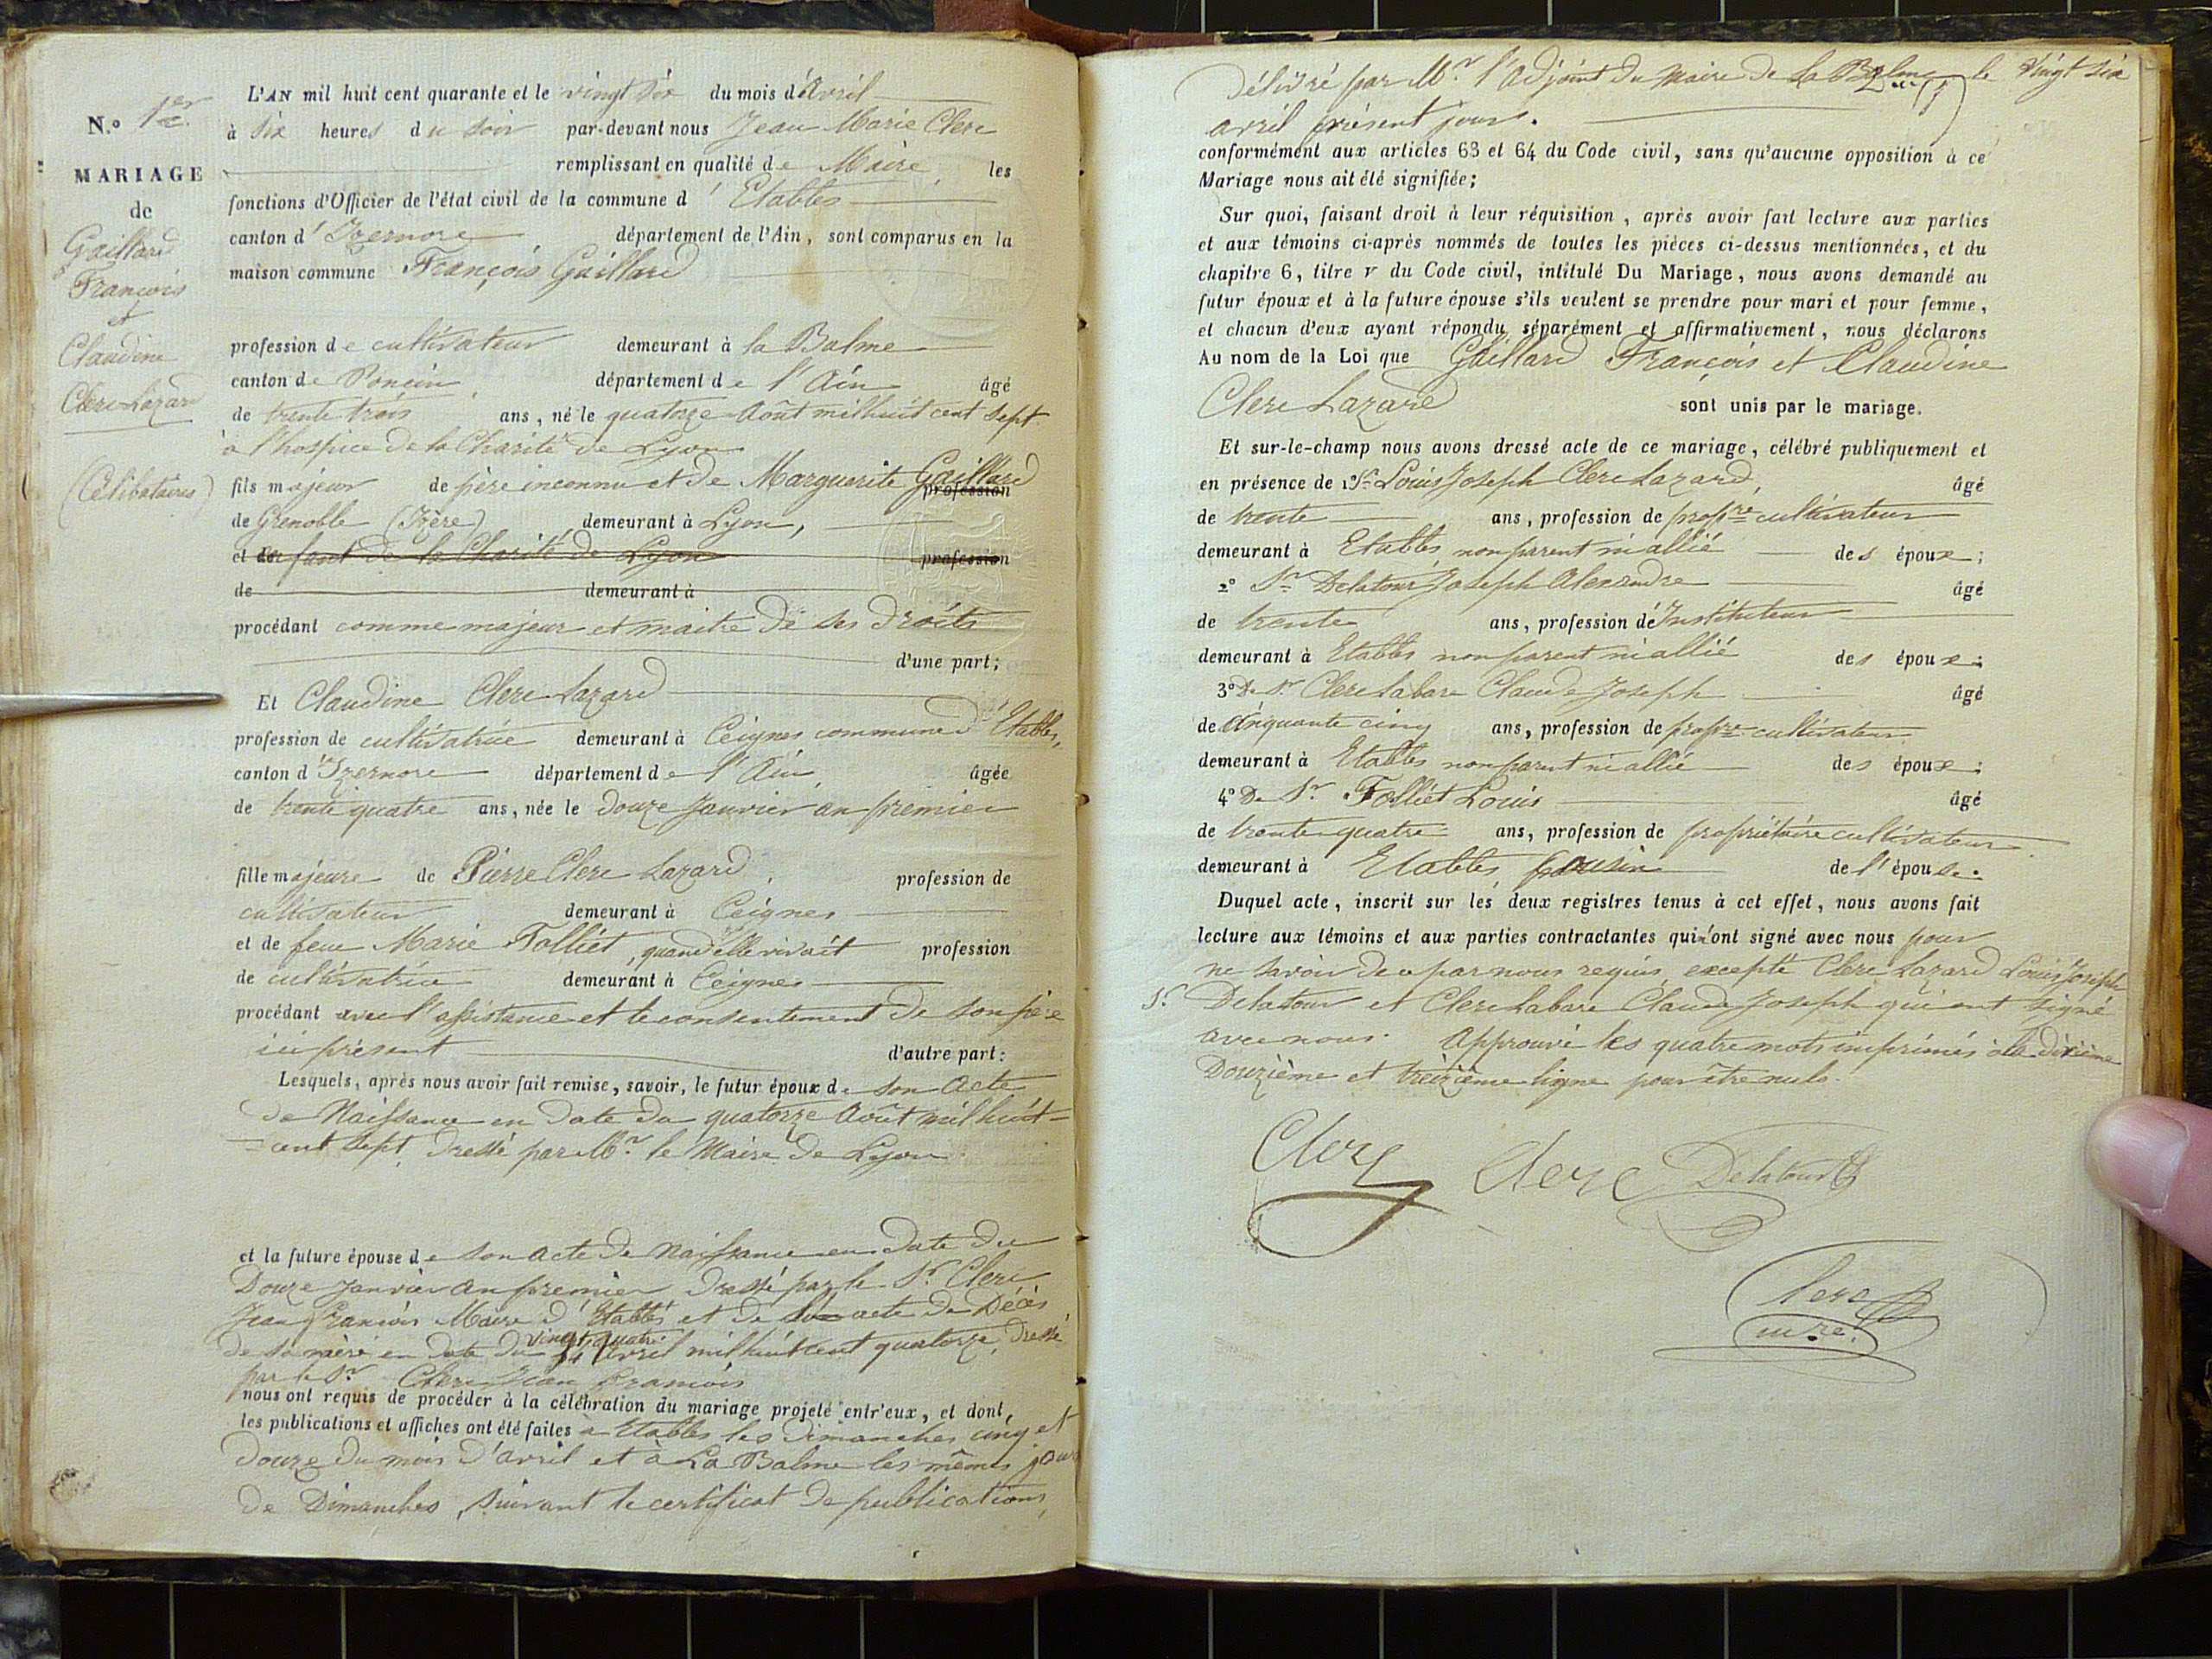 N.o 1er
MARIAGE
de
Gaillard
François
et
Claudine
Clerc Lazard
(Célibataires)
L'AN mil huit cent quarante et le vingt six du mois d'Avril
à six heures du soir par-devant nous Jean Marie Clerc
remplissant en qualité de Maire, les
fonctions d'Officier de l'état civil de la commune d'Etables
canton d'Izernore département de l'Ain, sont comparus en la
maison commune François Gaillard
profession de cultivateur demeurant à la Balme
canton de Poncin département de l'Ain âgé
de trente trois ans, né le quatorze Août mil huit cent sept
à l'hospice de la Charité de Lyon
fils majeur de père inconnu et de Marguerite Gaillard profession
de Grenoble (Izère) demeurant à Lyon,
et enfant de la Charité de Lyon profession
de demeurant à
procédant comme majeur et maitre de ses droits
d'une part;
Et Claudine Clerc Lazard
profession de cultivatrice demeurant à Ceignes commune d'Etables,
canton d'Izernore département de l'Ain, âgée
de trente quatre ans, née le douze Janvier an premier
fille majeure de Pierre Clerc Lazard, profession de
cultivateur demeurant à Ceignes
et de feue Marie Folliet, quand elle vivait profession
de cultivatrice demeurant à Ceignes
procédant avec l'assistance et le consentement de son père
ici présent d'autre part:
Lesquels, après nous avoir fait remise, savoir, le futur époux de son Acte
de Naissance en date du quatorze Août mil huit=
=cent sept, dressé par Mr. le Maire de Lyon
et la future épouse de son acte de Naissance en date du
Douze Janvier an premier dressé par le Sr. Clerc
Jean François Maire d'Etables et de acte de Décès
de sa mère en date du vingt quatre Avril mil huit cent quatorze, dressé
par le Sr. Clerc Jean François
nous ont requis de procéder à la célébration du mariage projeté entr'eux, et dont,
les publications et affiches ont été faites à Etables les dimanches cinq et
douze du mois d'avril et à La Balme les mêmes jours
de Dimanches, suivant le certificat de publications,
délivré par Mr. l'adjoint du Maire de La Balme le vingt six
avril présent jour.
conformément aux articles 63 et 64 du Code civil, sans qu'aucune opposition à ce
Mariage nous ait été signifiée;
Sur quoi, faisant droit à leur réquisition, après avoir fait lecture aux parties
et aux témoins ci-après nommés de toutes les pièces ci-dessus mentionnées, et du
chapitre 6, titre V du Code civil, intitulé Du Mariage, nous avons demandé au
futur époux et à la future épouse s'ils veulent se prendre pour mari et pour femme,
et chacun d'eux ayant répondu séparément et affirmativement, nous déclarons
Au nom de la Loi que Gaillard François et Claudine
Clerc Lazard sont unis par le mariage.
Et sur-le-champ nous avons dressé acte de ce mariage, célébré publiquement et
en présence de 1° Sr. Louis Joseph Clerc Lazard, âgé
de trente ans, profession de propre cultivateur
demeurant à Etables non parent ni allié des époux;
2° Sr. Delatour Joseph Alexandre âgé
de trente ans, profession d'Instituteur
demeurant à Etables non parent ni allié des époux;
3° De Sr. Clerc Labare Claude Joseph âgé
de cinquante cinq ans, profession de propre cultivateur
demeurant à Etables non parent ni allié des époux;
4° De Sr. Folliet Louis âgé
de trente quatre ans, profession de propriétaire cultivateur
demeurant à Etables cousin de l'épouse.
Duquel acte, inscrit sur les deux registres tenus à cet effet, nous avons fait
lecture aux témoins et aux parties contractantes qui n'ont signé avec nous pour
ne savoir de ce par nous requis, excepté Clerc Lazard Louis Joseph
Sr. Delatour et Clerc Labare Claude Joseph qui ont signé
avec nous. Approuvé les quatre mots imprimés à la dixième
Douzième et treizième ligne pour être nuls.
Clerc Clerc Delatour
Clerc
mre.